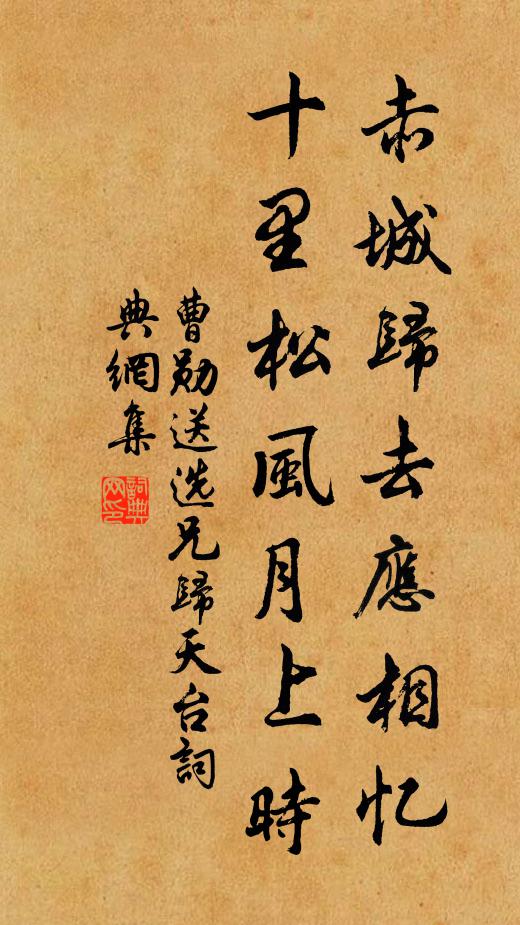 赤城歸去應相忆
十里松風月上時
曹勛送选兄歸天台詞
典網集
詞典網印